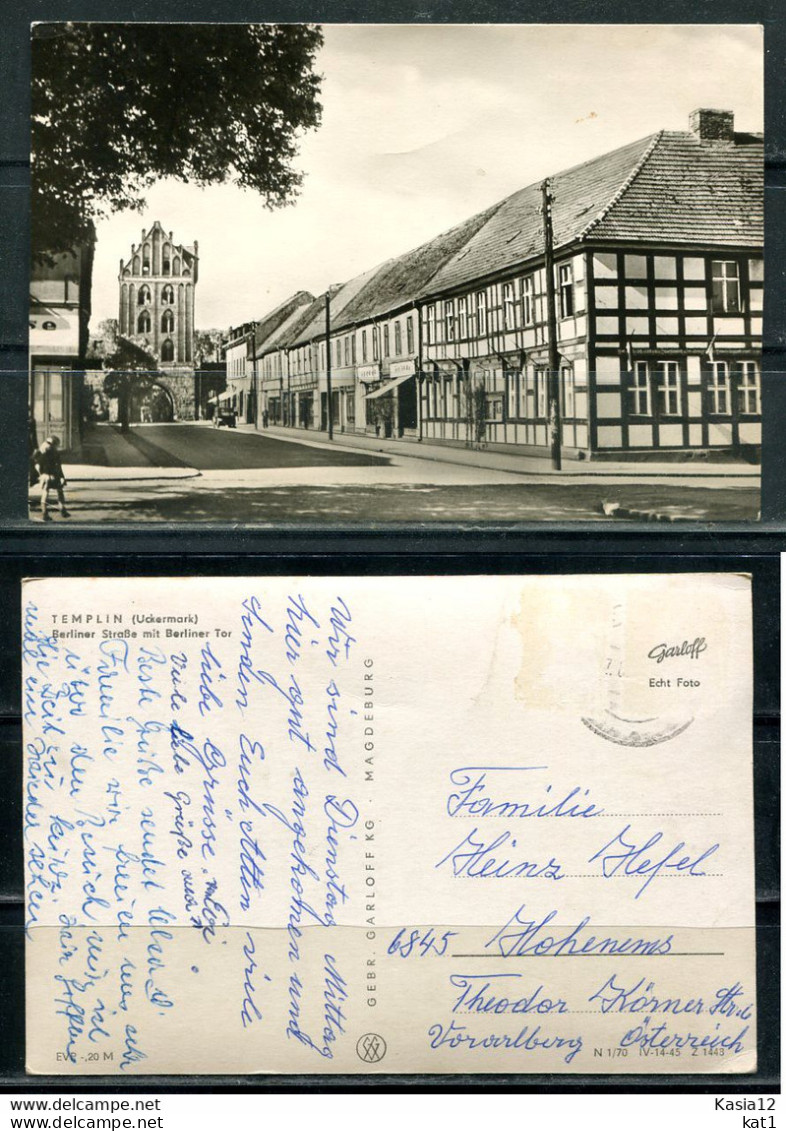 TEMPLIN (Uckermark)
Berliner Straße mit Berliner Tor
Wir sind Dienstag Mittag
hier gut angekommen und
senden Euch Allen viele
liebe Grüsse.
Viele liebe Grüße
Beste Grüße sendet
Familie wir freuen uns sehr
über den Besuch
die Zeit zu kurz.
mal ein
sehen
GEBR. GARLOFF KG · MAGDEBURG
Garloff
Echt Foto
Familie
Heinz Hefel
6845 Hohenems
Theodor Körner Str. 6
Vorarlberg Österreich
EVP -,20 M
N 1/70 IV-14-45 Z 1448
www.delcampe.net
www.delcampe.net
Kasia12
kat1